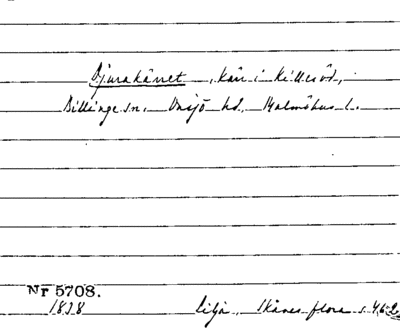 Djurakärret , kärr i Killesöd,
Billinge sn. Onsjö hd, Malmöhus l.
Nr 5708.
1838 Lilja, Skånes flora s.